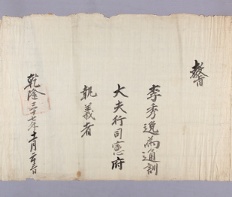 教旨
李秀逸為通訓
大夫行司憲府
執義者
乾隆三十七年十一月